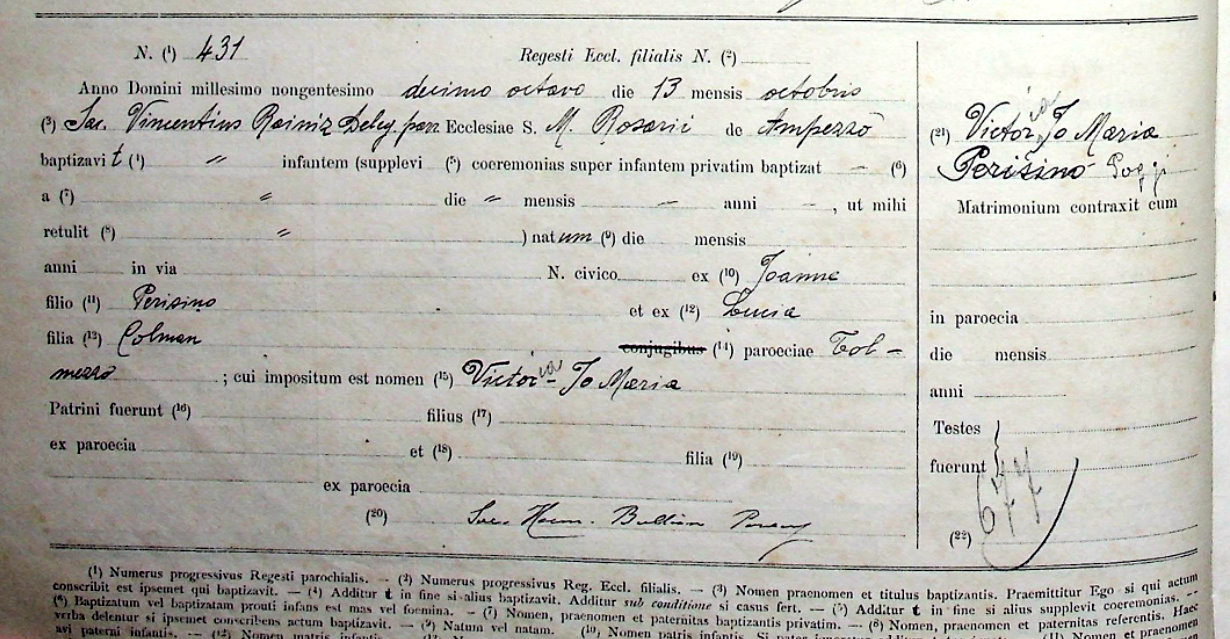 N. (¹) 431 Regesti Eccl. filialis N. (²)
Anno Domini millesimo nongentesimo decimo octavo die 13 mensis octobris
(³) Sac. Vincentius Rainiz Deleg. par. Ecclesiae S. M. Rosarii de Ampezzo
baptizavi t (⁴) " infantem (supplevi (⁵) coeremonias super infantem privatim baptizat – (⁶)
a (⁷) " die " mensis – anni – , ut mihi
retulit (⁸) " ) natum (⁹) die mensis
anni in via N. civico ex (¹⁰) Joanne
filio (¹¹) Perisino et ex (¹²) Lucia
filia (¹³) Colman conjugibus (¹⁴) paroeciae Tol-
mezzo ; cui impositum est nomen (¹⁵) Victoria - Jo Maria
Patrini fuerunt (¹⁶) filius (¹⁷)
ex paroecia et (¹⁸) filia (¹⁹)
ex paroecia
(²⁰)
(²¹) Victoria Jo Maria
Perišino Poggi
Matrimonium contraxit cum
in paroecia
die mensis
anni
Testes
fuerunt
677
(²²)
(¹) Numerus progressivus Regesti parochialis. — (²) Numerus progressivus Reg. Eccl. filialis. — (³) Nomen praenomen et titulus baptizantis. Praemittitur Ego si qui actum
conscribit est ipsemet qui baptizavit. — (⁴) Additur t in fine si alius baptizavit. Additur sub conditione si casus fert. — (⁵) Additur t in fine si alius supplevit coeremonias. —
(⁶) Baptizatum vel baptizatam prouti infans est mas vel foemina. — (⁷) Nomen, praenomen et paternitas baptizantis privatim. — (⁸) Nomen, praenomen et paternitas referentis. Haec
verba delentur si ipsemet conscribens actum baptizavit. — (⁹) Natum vel natam. — (¹⁰) Nomen patris infantis. Si pater
avi paterni infantis. — (¹²) Nomen matris infantis (¹¹) Nomen